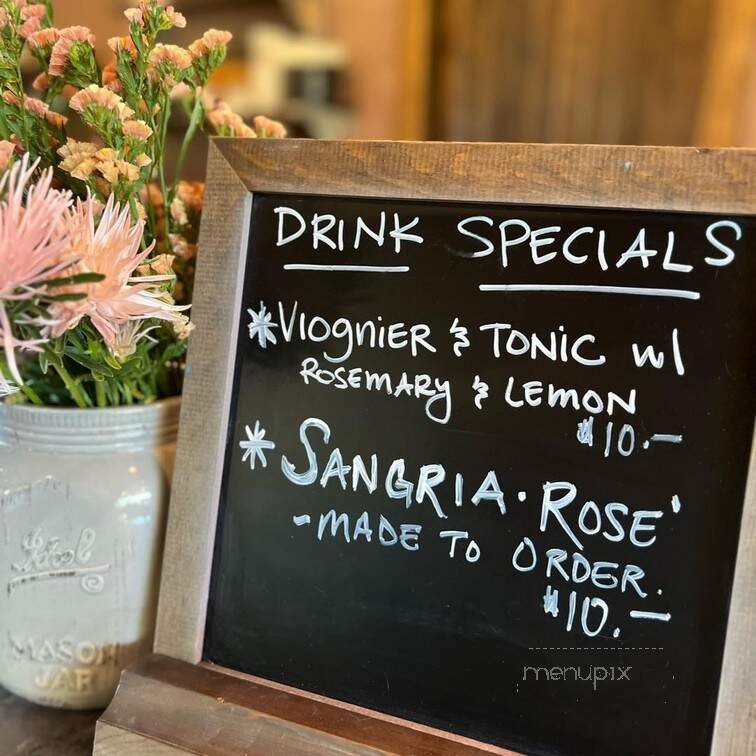 DRINK SPECIALS
*Viognier & TONIC w/
ROSEMARY & LEMON
$10.—
*SANGRIA · ROSE'
-MADE TO ORDER.
$10.—
Ideal
MASON
JAR
menupix